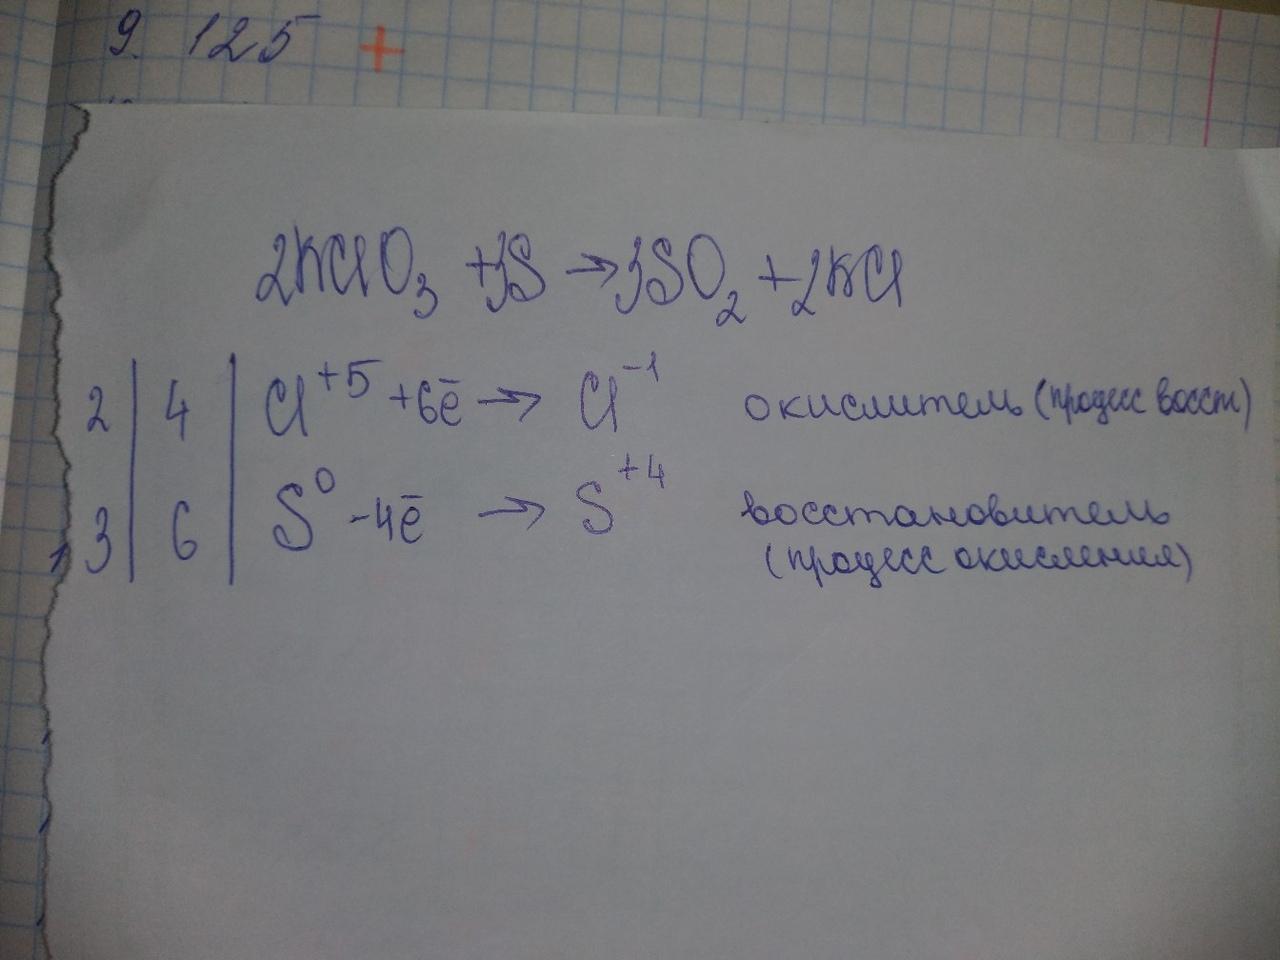 9. 125 +
2KClO₃ + 3S → 3SO₂ + 2KCl
2 | 4 | Cl⁺⁵ +6ē → Cl⁻¹ окислитель (процесс восст)
3 | 6 | S⁰ -4ē → S⁺⁴ восстановитель
(процесс окисления)